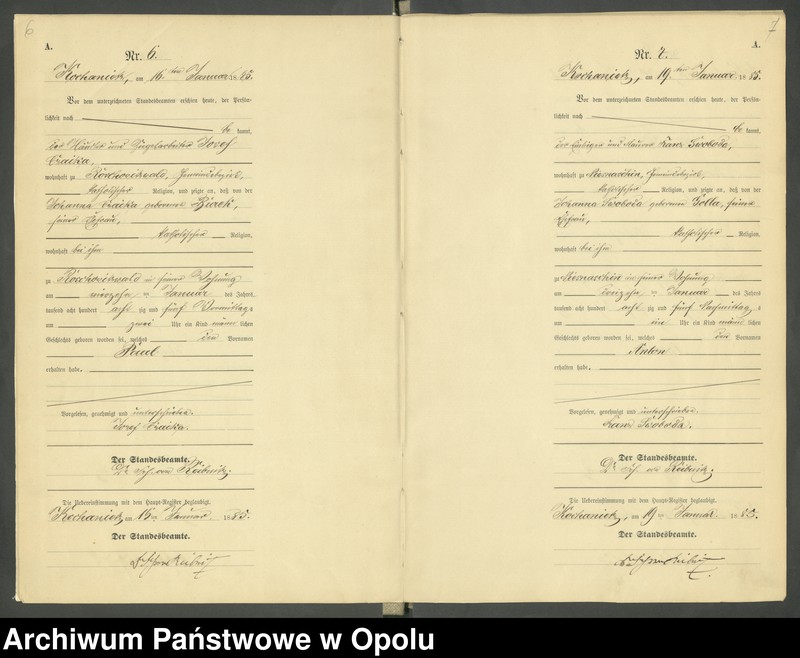 6
A.
Nr. 6.
Kochanietz, am 16 ten Januar 1885.
Vor dem unterzeichneten Standesbeamten erschien heute, der Persön-
lichkeit nach
be kannt,
der Häusler und Josef
wohnhaft zu Gemeindebezirk,
katholischer Religion, und zeigte an, daß von der
Johanna geborene
seiner Ehefrau,
katholischer Religion,
wohnhaft bei ihm
zu in seiner Wohnung
am vierzehn ten Januar des Jahres
tausend acht hundert acht zig und fünf Vormittags
um zwei Uhr ein Kind männ lichen
Geschlechts geboren worden sei, welches den Vornamen
Paul
erhalten habe.
Vorgelesen, genehmigt und unterschrieben.
Josef
Der Standesbeamte.
Dr. von
Die Uebereinstimmung mit dem Haupt-Register beglaubigt.
Kochanietz am Januar 1885.
Der Standesbeamte.
7
A.
Nr. 7.
Kochanietz, am 19 ten Januar 1885.
Vor dem unterzeichneten Standesbeamten erschien heute, der Persön-
lichkeit nach
be kannt,
der und Maurer Franz Swoboda,
wohnhaft zu Gemeindebezirk,
katholischer Religion, und zeigte an, daß von der
Johanna Swoboda geborenen Golla, seiner
Ehefrau,
katholischer Religion,
wohnhaft bei ihm
zu in seiner Wohnung
am dreizehn ten Januar des Jahres
tausend acht hundert acht zig und fünf Nachmittag s
um ein Uhr ein Kind männ lichen
Geschlechts geboren worden sei, welches den Vornamen
Anton
erhalten habe.
Vorgelesen, genehmigt und unterschrieben.
Franz Swoboda.
Der Standesbeamte.
Dr. von
Die Uebereinstimmung mit dem Haupt-Register beglaubigt.
Kochanietz, am 19 ten Januar 1885.
Der Standesbeamte.
Archiwum Państwowe w Opolu